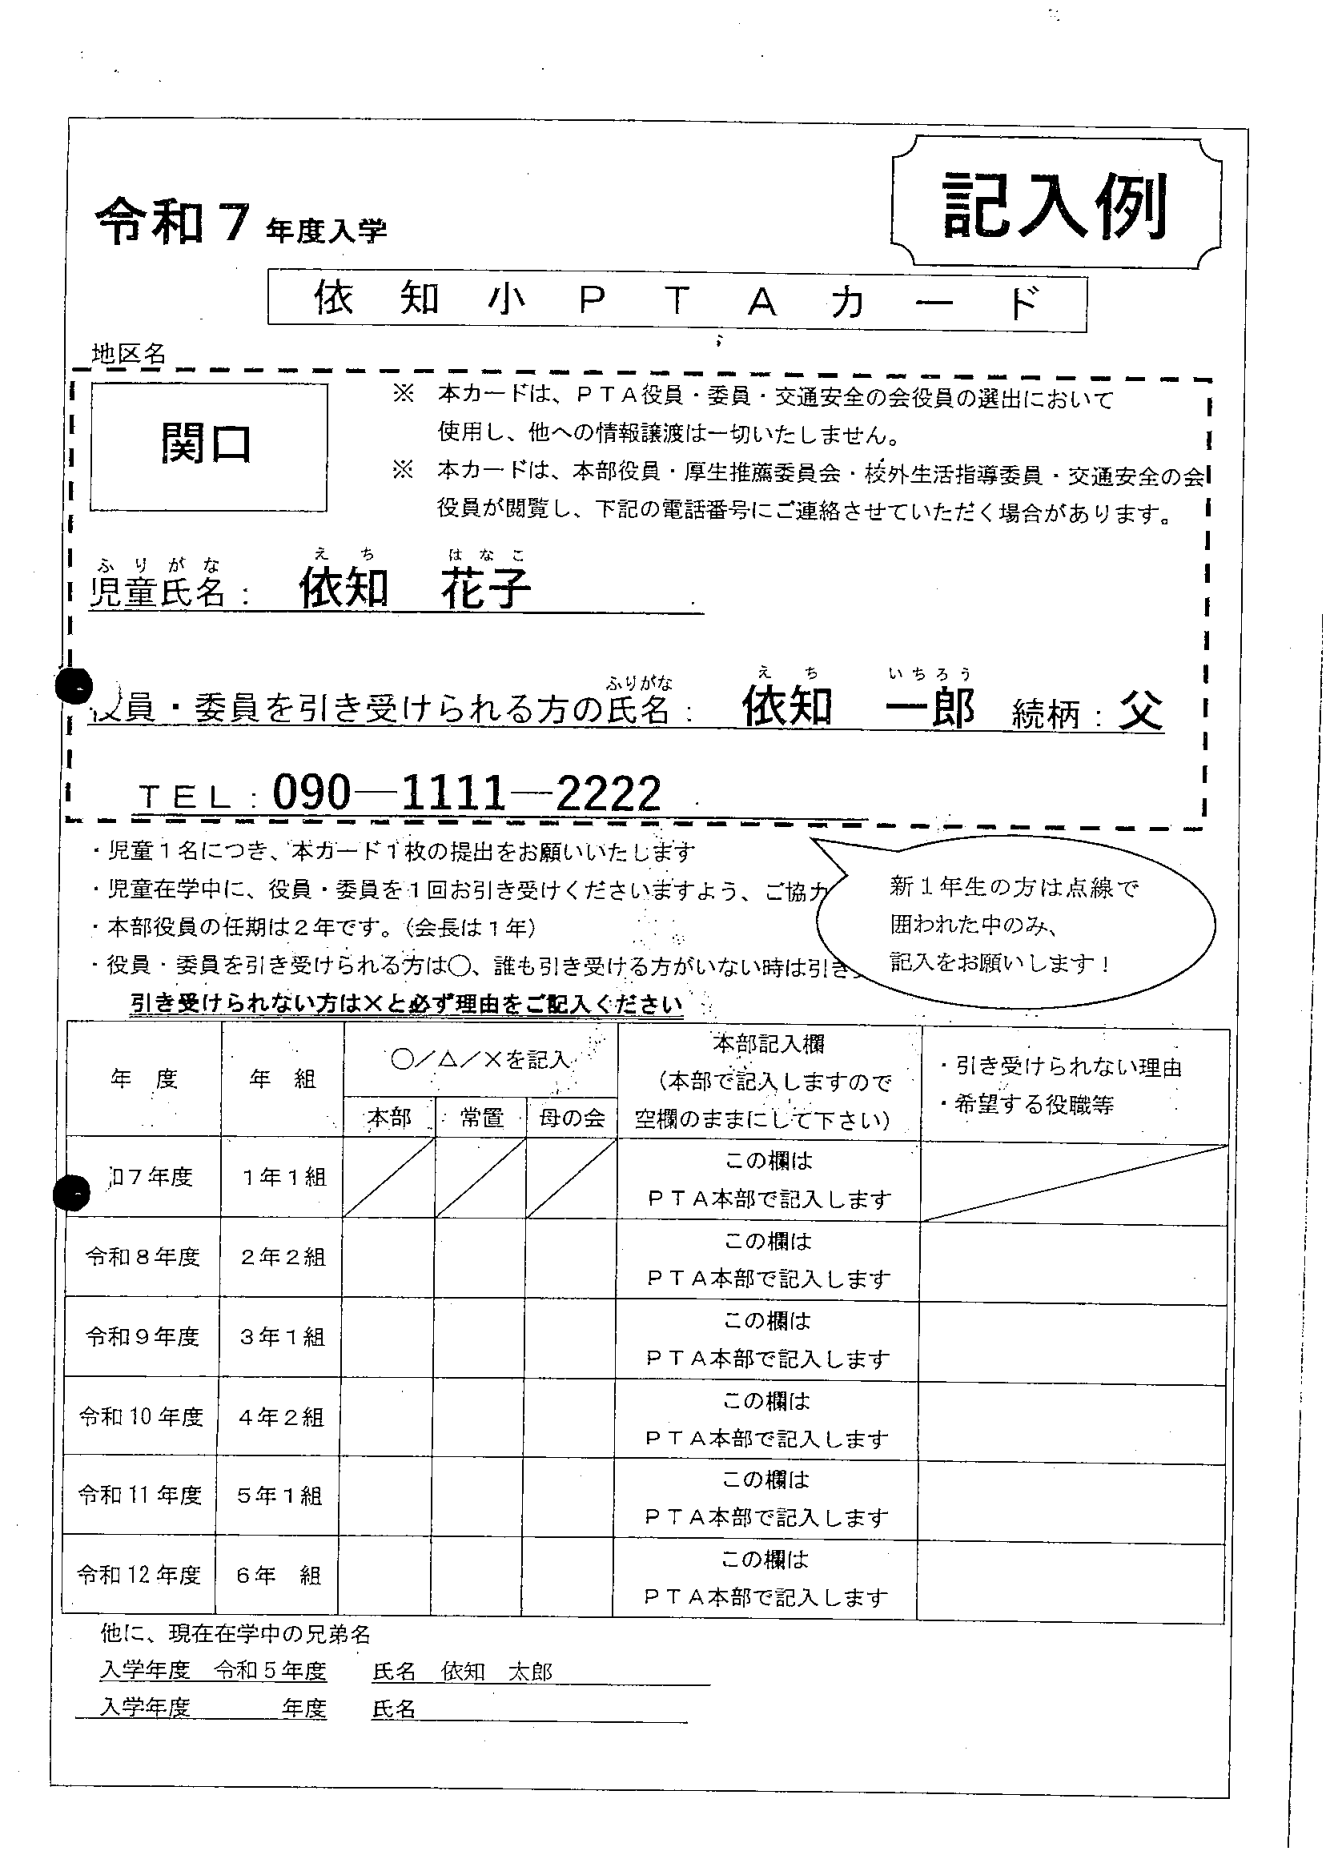 記入例
令和７年度入学
依知小ＰＴＡカード
地区名
関口
※　本カードは、ＰＴＡ役員・委員・交通安全の会役員の選出において
使用し、他への情報譲渡は一切いたしません。
※　本カードは、本部役員・厚生推薦委員会・校外生活指導委員・交通安全の会
役員が閲覧し、下記の電話番号にご連絡させていただく場合があります。
ふりがな　えち　はなこ
児童氏名：　依知　花子
ふりがな　えち　いちろう
役員・委員を引き受けられる方の氏名：　依知　一郎　続柄：父
ＴＥＬ：090―1111―2222
・児童１名につき、本カード１枚の提出をお願いいたします
・児童在学中に、役員・委員を１回お引き受けくださいますよう、ご協力
・本部役員の任期は２年です。（会長は１年）
・役員・委員を引き受けられる方は○、誰も引き受ける方がいない時は引き
引き受けられない方は×と必ず理由をご記入ください
新１年生の方は点線で
囲われた中のみ、
記入をお願いします！
年　度　年　組　○／△／×を記入　本部記入欄
（本部で記入しますので
空欄のままにして下さい）
・引き受けられない理由
・希望する役職等
本部　常置　母の会
和７年度　１年１組　この欄は
ＰＴＡ本部で記入します
令和８年度　２年２組　この欄は
ＰＴＡ本部で記入します
令和９年度　３年１組　この欄は
ＰＴＡ本部で記入します
令和10年度　４年２組　この欄は
ＰＴＡ本部で記入します
令和11年度　５年１組　この欄は
ＰＴＡ本部で記入します
令和12年度　６年　組　この欄は
ＰＴＡ本部で記入します
他に、現在在学中の兄弟名
入学年度　令和５年度　氏名　依知　太郎
入学年度　　　　年度　氏名